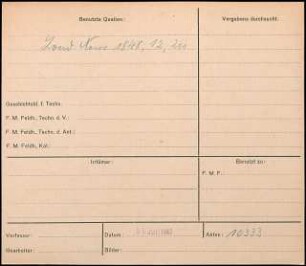 Benutzte Quellen:
Vergebens durchsucht:
Lond News 1848, 12, 211
Geschichtsbl. f. Techn.
F. M. Feldh., Techn. d. V.:
F. M. Feldh., Techn. d. Ant.:
F. M. Feldh., Kal.:
Irrtümer:
Benutzt zu:
F. M. F.:
Verfasser:
Datum:
Akten: 10333
Bearbeiter:
Bilder: